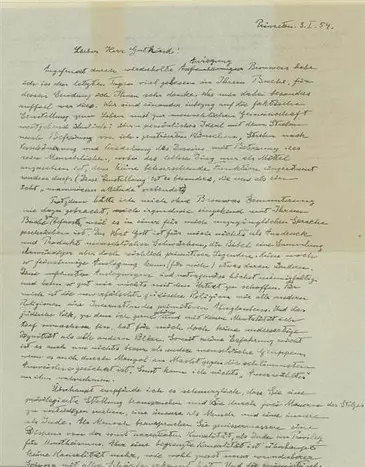 Princeton. 3. I. 54.
Lieber Herr Gutkind!
Angefeuert durch wiederholte Anregung Brouwers habe
ich in den letzten Tagen viel gelesen in Ihrem Buche, für
dessen Sendung ich Ihnen sehr danke. Was mir dabei besonders
auffiel war dies. Wir sind einander inbezug auf die faktische
Einstellung zum Leben und zur menschlichen Gemeinschaft
weitgehend ähnlich: über-persönliches Ideal mit dem Streben
nach Befreiung von ich-zentrierten Wünschen, Streben nach
Verschönerung und Veredelung des Daseins mit Betonung des
rein Menschlichen, wobei das leblose Ding nur als Mittel
anzusehen ist, dem keine beherrschende Funktion eingeräumt
werden darf. (Diese Einstellung ist es besonders, die uns als ein
echt „unamerican attitude" verbindet)
Trotzdem hätte ich mich ohne Brouwers Ermunterung
nie dazu gebracht, mich irgendwie eingehend mit Ihrem
Buche zu befassen, weil es in einer für mich unzugänglichen Sprache
geschrieben ist. Das Wort Gott ist für mich nichts als Ausdruck
und Produkt menschlicher Schwächen, die Bibel eine Sammlung
ehrwürdiger aber doch reichlich primitiver Legenden. Keine noch
so feinsinnige Auslegung kann (für mich) etwas daran ändern.
Diese verfeinerten Auslegungen sind naturgemäss höchst mannigfaltig
und haben so gut wie nichts mit dem Urtext zu schaffen. Für
mich ist die unverfälschte jüdische Religion wie alle anderen
Religionen eine Incarnation des primitiven Aberglaubens. Und das
jüdische Volk, zu dem ich gerne gehöre und mit dessen Mentalität ich
tief verwachsen bin, hat für mich doch keine andersartige
Dignität als alle anderen Völker. Soweit meine Erfahrung reicht
ist es auch um nichts besser als andere menschliche Gruppen
wenn es auch durch Mangel an Macht gegen die schlimmsten
Auswüchse gesichert ist. Sonst kann ich nichts „Auserwähltes"
an ihm wahrnehmen.
Überhaupt empfinde ich es schmerzlich, dass Sie eine
privilegierte Stellung beanspruchen und sie durch zwei Mauern des Stolzes
zu verteidigen suchen, eine äussere als Mensch und eine innere
als Jude. Als Mensch beanspruchen Sie gewissermassen einen
Dispens von der sonst acceptierten Kausalität, als Jude ein Privileg
für Monotheismus. Aber eine begrenzte Kausalität ist überhaupt
keine Kausalität mehr, wie wohl zuerst unser wunderbarer
Spinoza mit aller Schärfe erkannt hat. Und die animistische